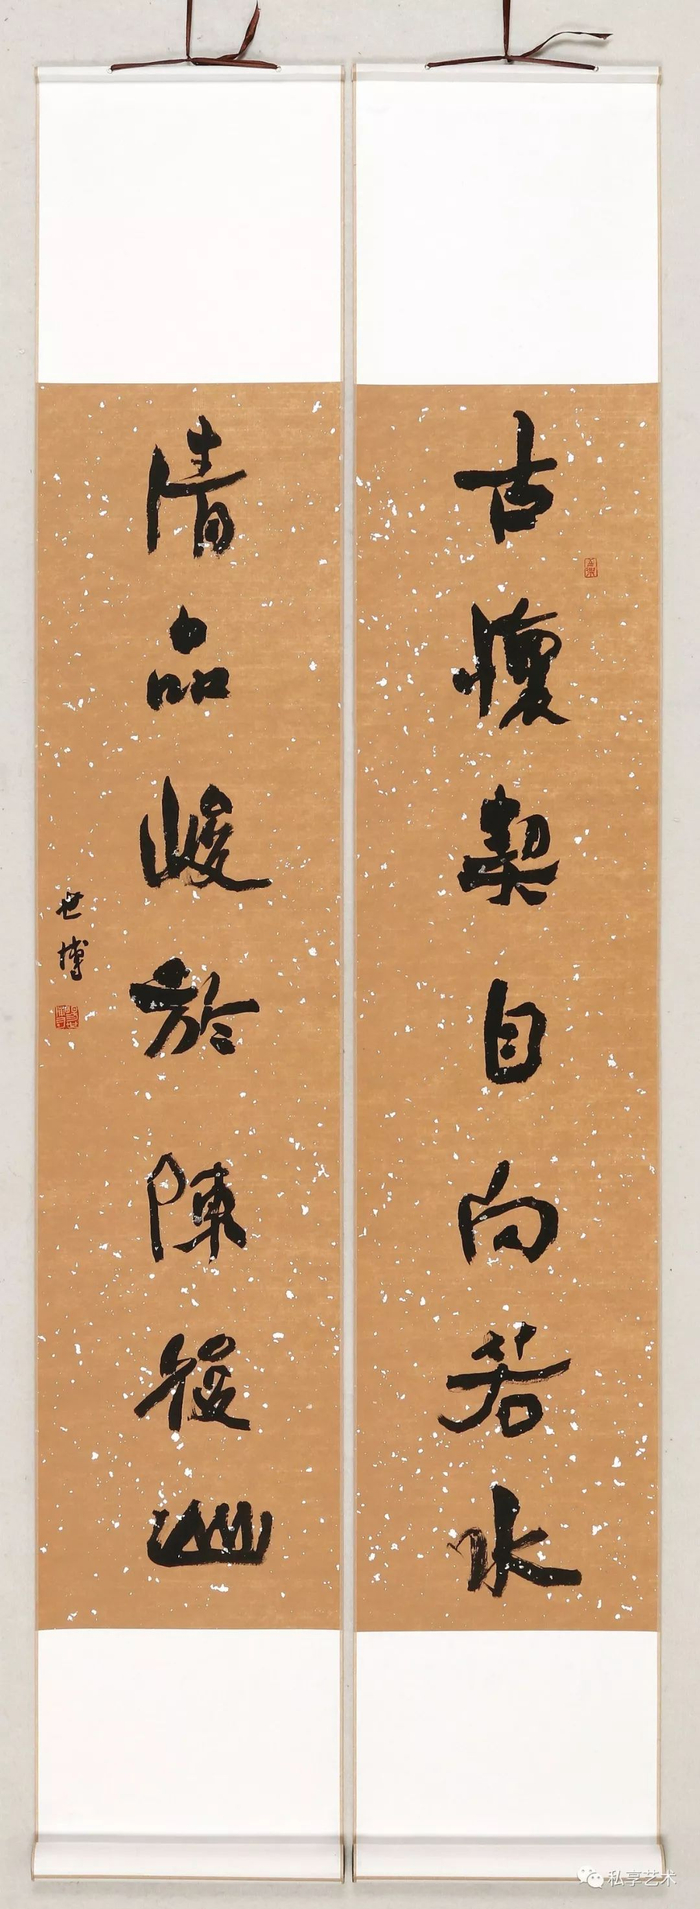 古懷契自向若水
清品峻於陳後山
世博
私享艺术